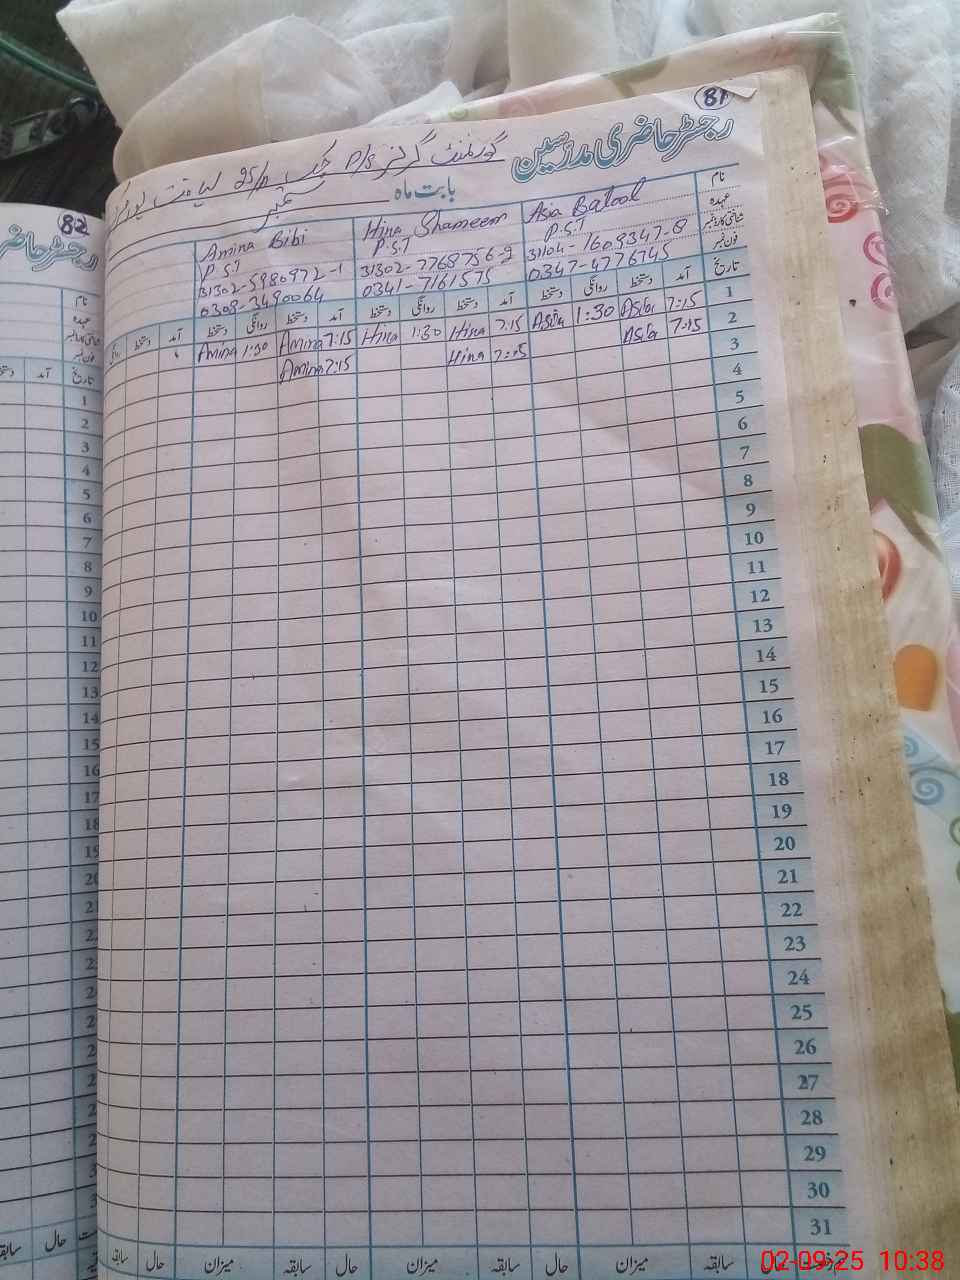 81
رجسٹر حاضری مدرسین
گورنمنٹ گرلز P/S چک 25/P
بابت ماہ ستمبر
نام Asia Batool Hina Shameem Amina Bibi
عہدہ P.S.T P.S.T P.S.T
شناختی کارڈ نمبر 31104-1609347-8 31302-7768756-2 31302-5980972-1
فون نمبر 0347-4776745 0341-7161575 0308-3490064
تاریخ آمد دستخط روانگی دستخط آمد دستخط روانگی دستخط آمد دستخط روانگی دستخط آمد دستخط روانگی
1 7:15 Asia 1:30 Asia 7:15 Hina 1:30 Hina 7:15 Amina 1:30 Amina
2 7:15 Asia 7:15 Hina 7:15 Amina
3
4
5
6
7
8
9
10
11
12
13
14
15
16
17
18
19
20
21
22
23
24
25
26
27
28
29
30
31
سابقہ میزان حال سابقہ میزان حال سابقہ میزان حال سابقہ
82
رجسٹر حاضری
نام
عہدہ
تاریخ آمد
1
2
3
4
5
6
7
8
9
10
11
12
13
14
15
16
17
18
19
حال سابقہ
02-09-25 10:38